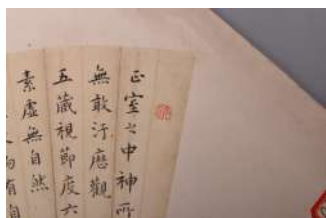 正室之中神所
無敢汙應觀
五藏視節度六
素虛無自然